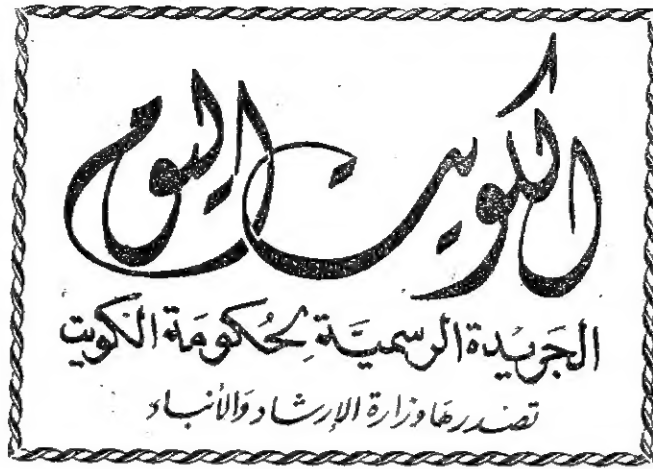 الكويت اليوم
الجَريْدة الرسميَّة لِحُكومَة الكويت
تصدرهَا وزارة الإرشاد وَالأنباء